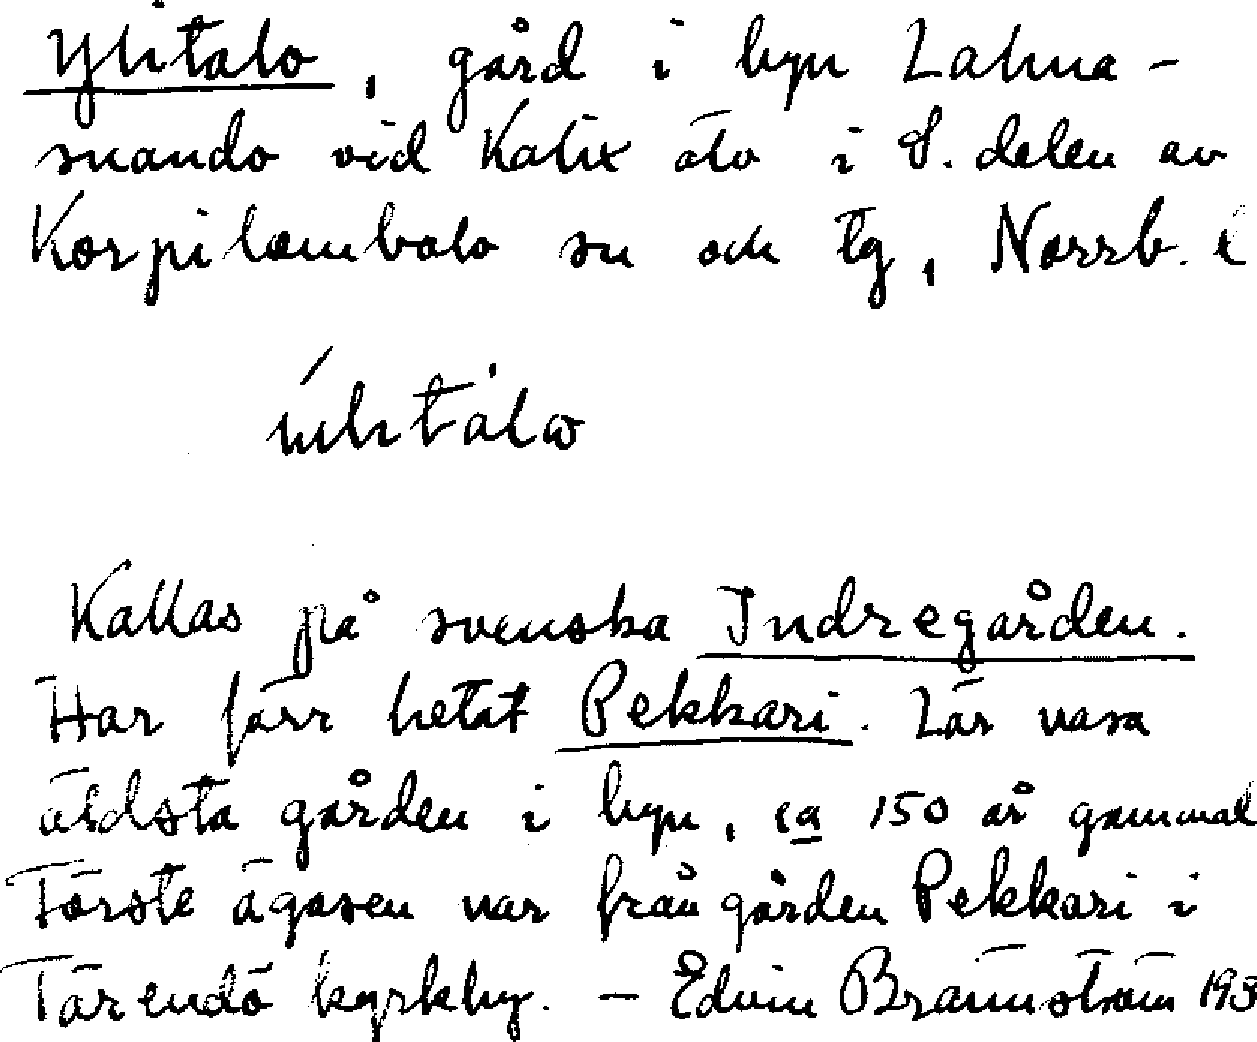 Ylitalo, gård i byn Lahna-
suando vid Kalix älv i S. delen av
Korpilombolo sn och tg, Norrb. l
Kallas på svenska Indregården.
Har förr hetat Pekkari. Lär vara
äldsta gården i byn, ca 150 år gammal
Förste ägaren var från gården Pekkari i
Tärendö kyrkby. – Edvin Brännström 193